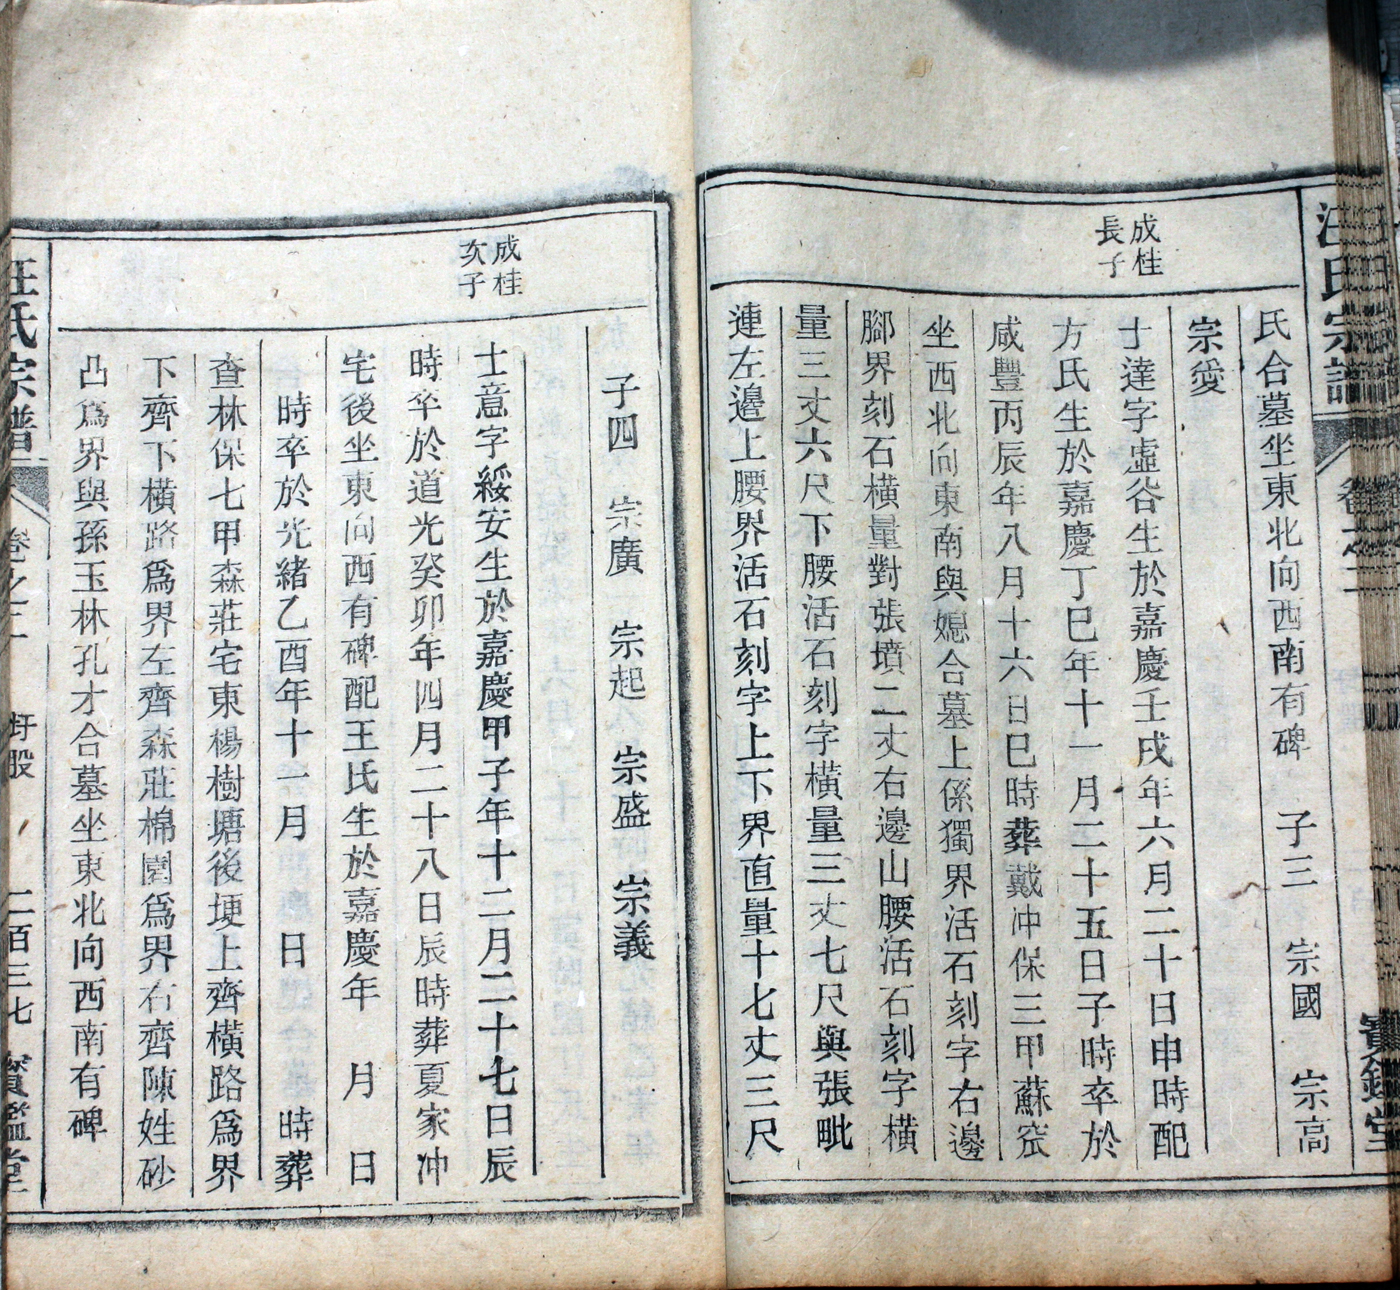 汪氏宗譜
卷之二
寶鑑堂
氏合墓坐東北向西南有碑 子三 宗國 宗高
宗愛
成桂
長子
士達字虛谷生於嘉慶壬戌年六月二十日申時配
方氏生於嘉慶丁巳年十一月二十五日子時卒於
咸豐丙辰年八月十六日巳時葬戴冲保三甲蘇窊
坐西北向東南與媳合墓上係獨界活石刻字右邊
腳界刻石橫量對張墳二丈右邊山腰活石刻字橫
量三丈六尺下腰活石刻字橫量三丈七尺與張毗
連左邊上腰界活石刻字上下界直量十七丈三尺
子四 宗廣 宗起 宗盛 宗義
成桂
次子
士意字綏安生於嘉慶甲子年十二月二十七日辰
時卒於道光癸卯年四月二十八日辰時葬夏家冲
宅後坐東向西有碑配王氏生於嘉慶年 月 日
時卒於光緒乙酉年十一月 日 時葬
查林保七甲森莊宅東楊樹塘後埂上齊橫路爲界
下齊下橫路爲界左齊森莊棉園爲界右齊陳姓砂
凸爲界與孫玉林孔才合墓坐東北向西南有碑
汪氏宗譜
卷之二
股
二百三七
寶鑑堂